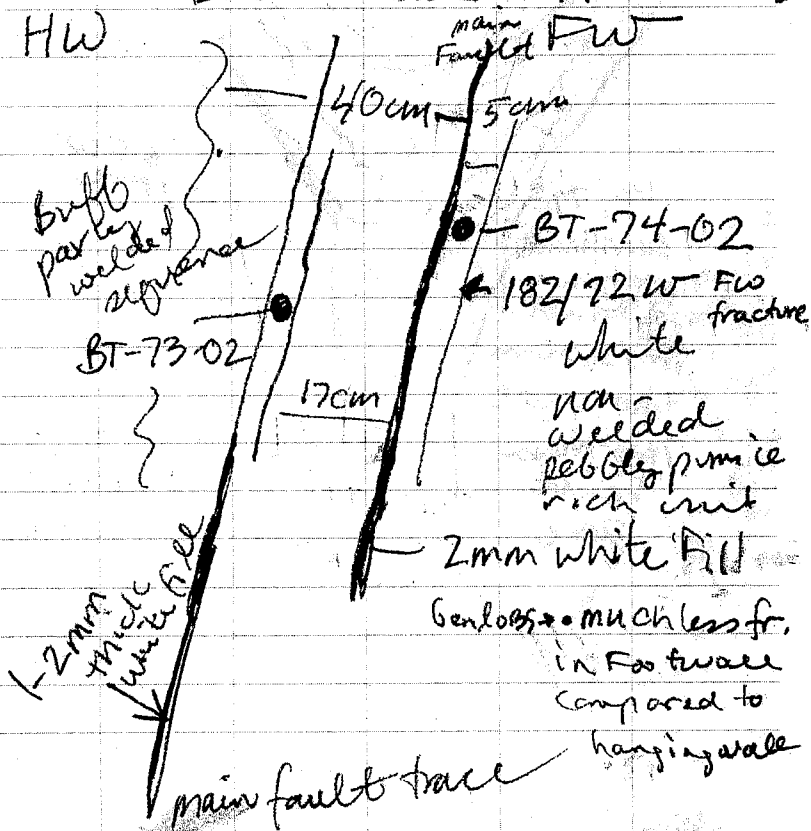 HW
main
Fault FW
40cm
5cm
Buff
partly
welded
sequence
BT-74-02
182/72W FW
fracture
BT-73-02
white
non-
welded
pebbly pumice
rich unit
17cm
2mm white Fill
1-2mm
thick
white fill
Gen. obs. • much less fr.
in Footwall
compared to
hangingwall
main fault trace